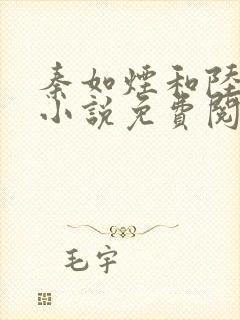 秦如煙和陸
小說免費閱
毛宇